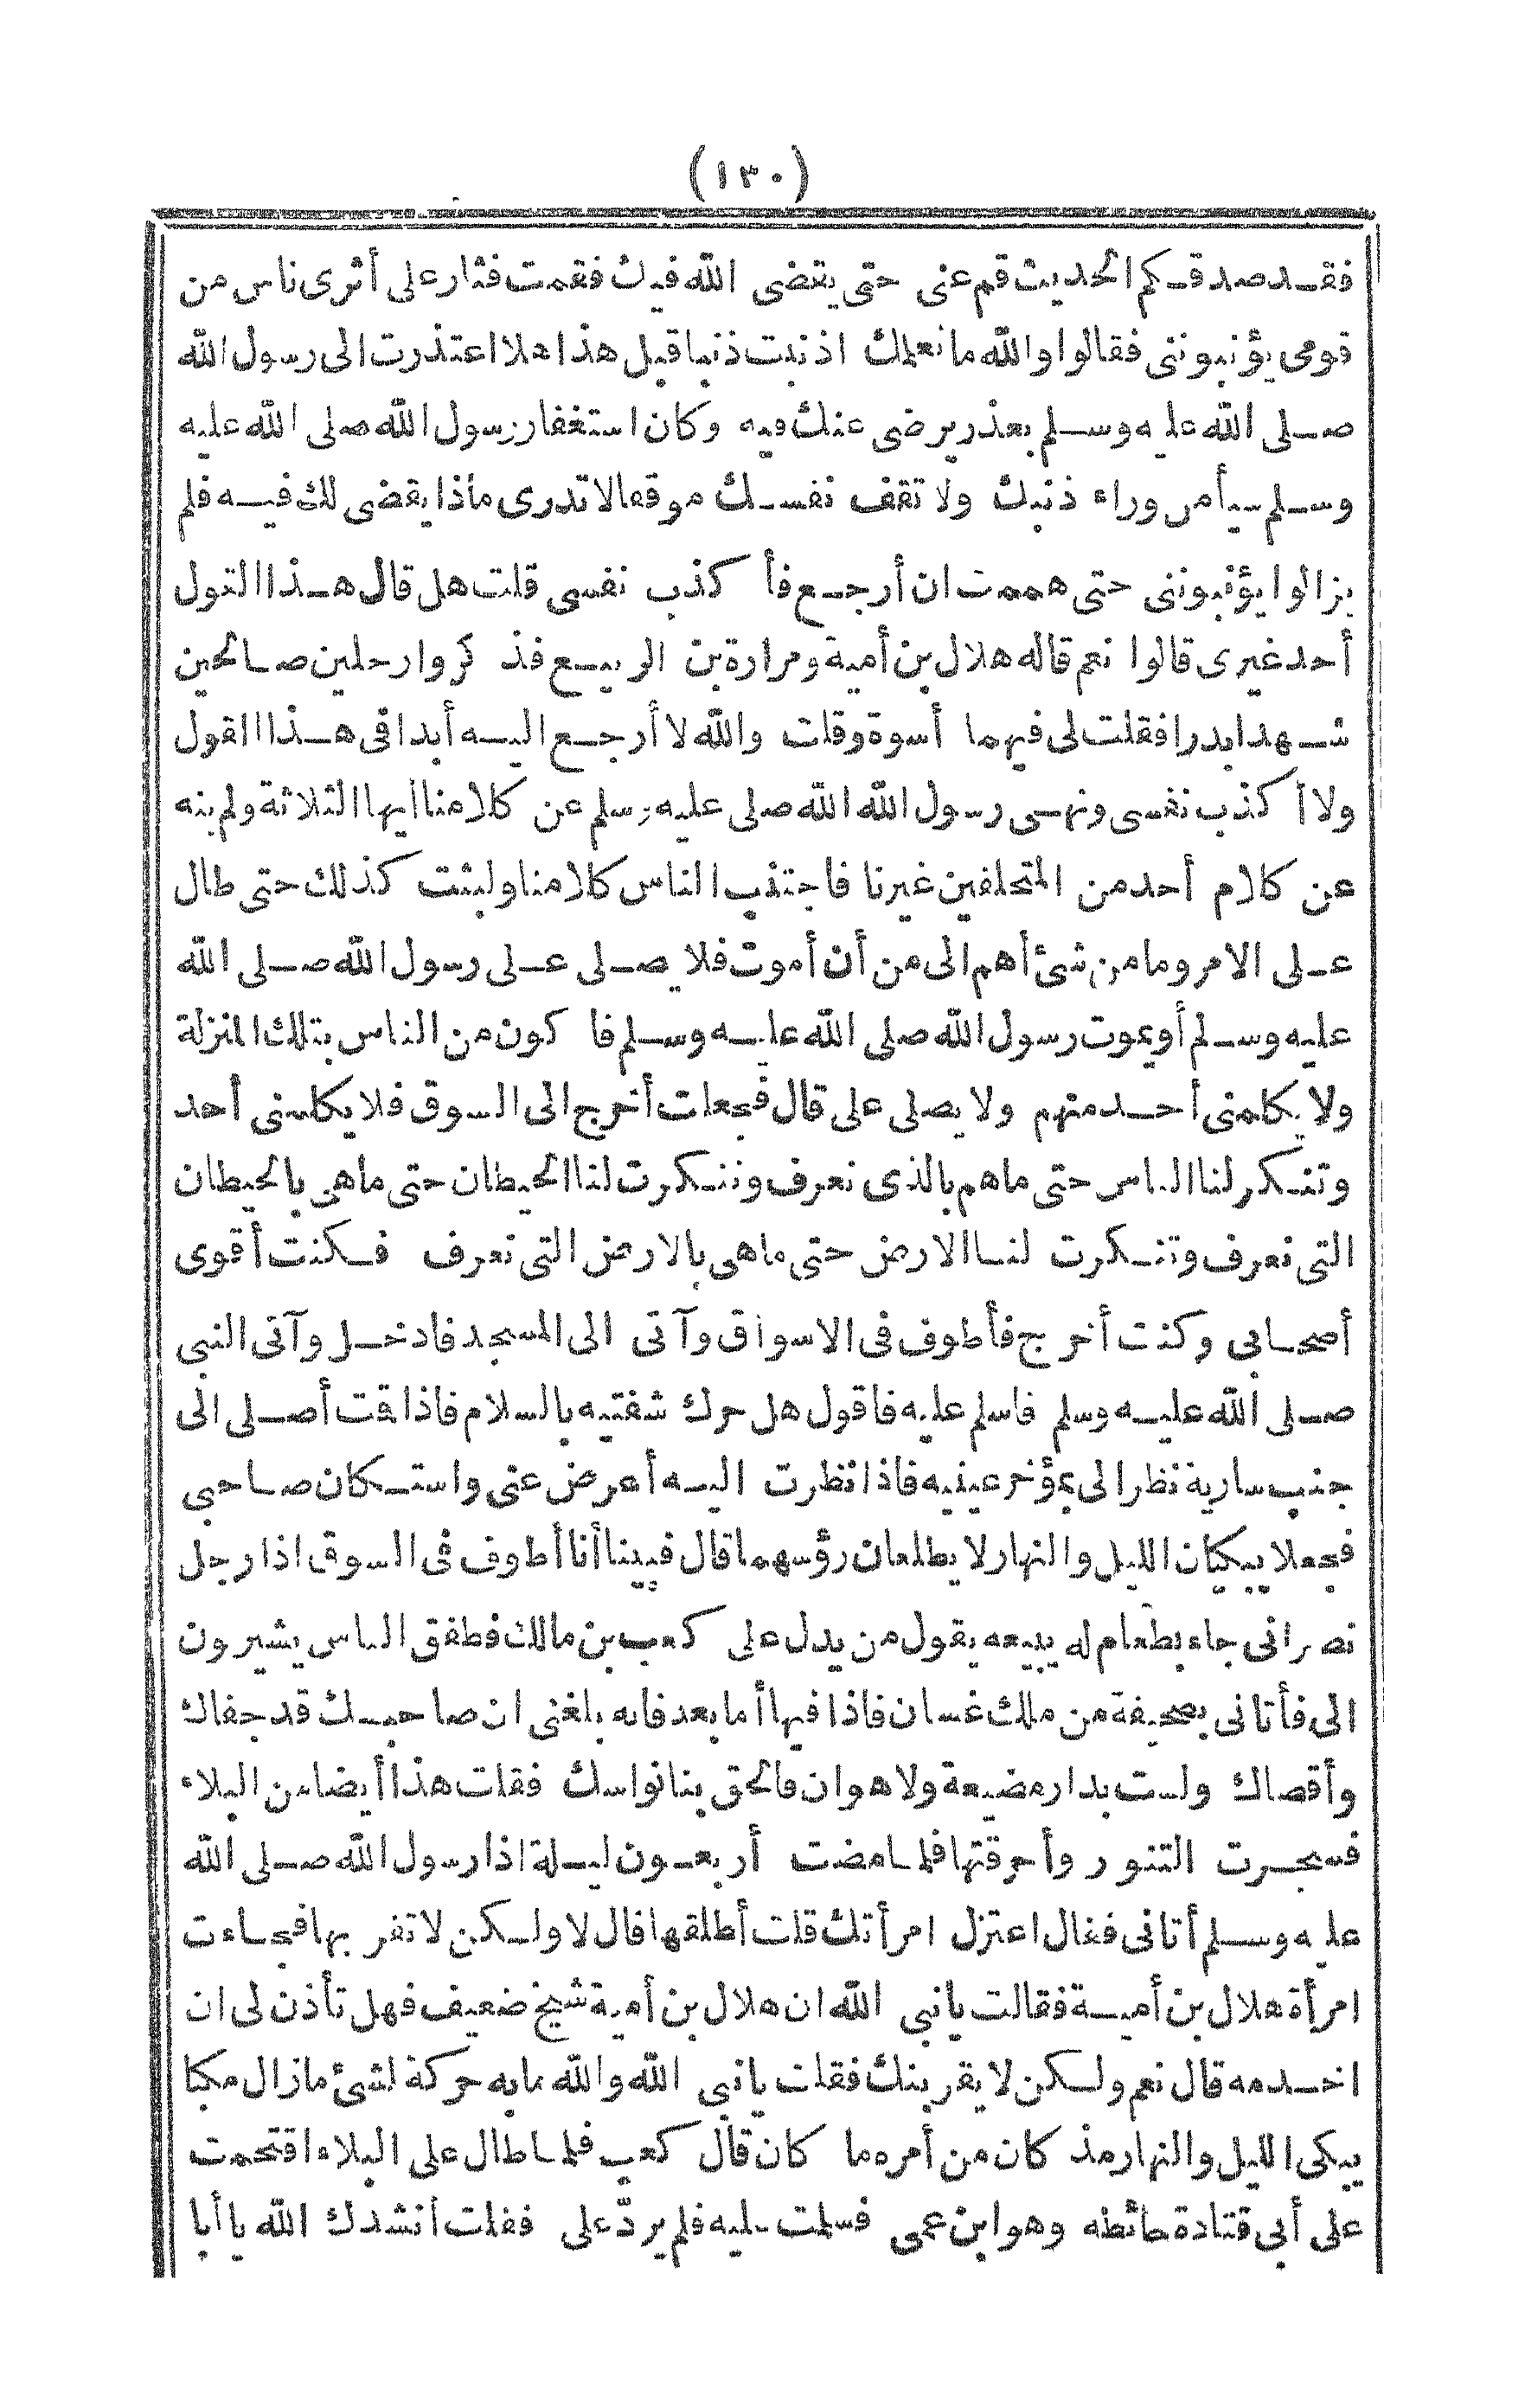 (١٣٠)
فقد صدقكم الحديث قم عنى حتى يقضى الله فيك فقمت فثار على أثرى ناس من
قومى يؤنبوننى فقالوا والله مانعلمك اذنبت ذنبا قبل هذا هلا اعتذرت الى رسول الله
صلى الله عليه وسلم بعذر يرضى عنك فيه وكان استغفار رسول الله صلى الله عليه
وسلم سيأمر وراء ذنبك ولا تقف نفسك موقفا لا تدرى ماذا يقضى لك فيه فلم
يزالوا يؤنبوننى حتى هممت ان أرجع فأكذب نفسى قلت هل قال هذا القول
أحد غيرى قالوا نعم قاله هلال بن أمية ومرارة بن الربيع فذكروا رجلين صالحين
شهدا بدرا فقلت لى فيهما أسوة وقلت والله لا أرجع اليه أبدا فى هذا القول
ولا أكذب نفسى ونهى رسول الله الله صلى عليه وسلم عن كلامنا أيها الثلاثة ولم ينه
عن كلام أحد من المتخلفين غيرنا فاجتنب الناس كلامنا ولبثت كذلك حتى طال
على الامر ومامن شئ أهم الى من أن أموت فلا يصلى على رسول الله صلى الله
عليه وسلم أو يموت رسول الله صلى الله عليه وسلم فاكون من الناس بتلك المنزلة
ولا يكلمنى أحد منهم ولا يصلى على قال فجعلت أخرج الى السوق فلا يكلمنى أحد
وتنكر لنا الناس حتى ماهم بالذى نعرف وتنكرت لنا الحيطان حتى ماهى بالحيطان
التى نعرف وتنكرت لنا الارض حتى ماهى بالارض التى نعرف فكنت أقوى
أصحابى وكنت أخرج فأطوف فى الاسواق وآتى الى المسجد فادخل وآتى النبى
صلى الله عليه وسلم فاسلم عليه فاقول هل حرك شفتيه بالسلام فاذا قمت أصلى الى
جنب سارية نظر الى بمؤخر عينيه فاذا نظرت اليه أعرض عنى واستكان صاحبى
فجعلا يبكيان الليل والنهار لا يطلعان رؤسهما قال فبينا أنا أطوف فى السوق اذا رجل
نصرانى جاء بطعام له يبيعه يقول من يدل على كعب بن مالك فطفق الناس يشيرون
الى فأتانى بصحيفة من ملك غسان فاذا فيها أما بعد فانه بلغنى ان صاحبك قد جفاك
وأقصاك ولست بدار مضيعة ولا هوان فالحق بنا نواسك فقلت هذا أيضا من البلاء
فسجرت التنور وأحرقتها فلما مضت أربعون ليلة اذا رسول الله صلى الله
عليه وسلم أتانى فقال اعتزل امرأتك قلت أطلقها قال لا ولكن لا تقر بها فجاءت
امرأة هلال بن أمية فقالت يانبى الله ان هلال بن أمية شيخ ضعيف فهل تأذن لى ان
اخدمه قال نعم ولكن لا يقربنك فقلت يانبى الله والله مابه حركة لشئ مازال مكبا
يبكى الليل والنهار مذ كان من أمره ما كان قال كعب فلما طال على البلاء اقتحمت
على أبى قتادة حائطه وهو ابن عمى فسلمت عليه فلم يردّ على فقلت أنشدك الله يا أبا